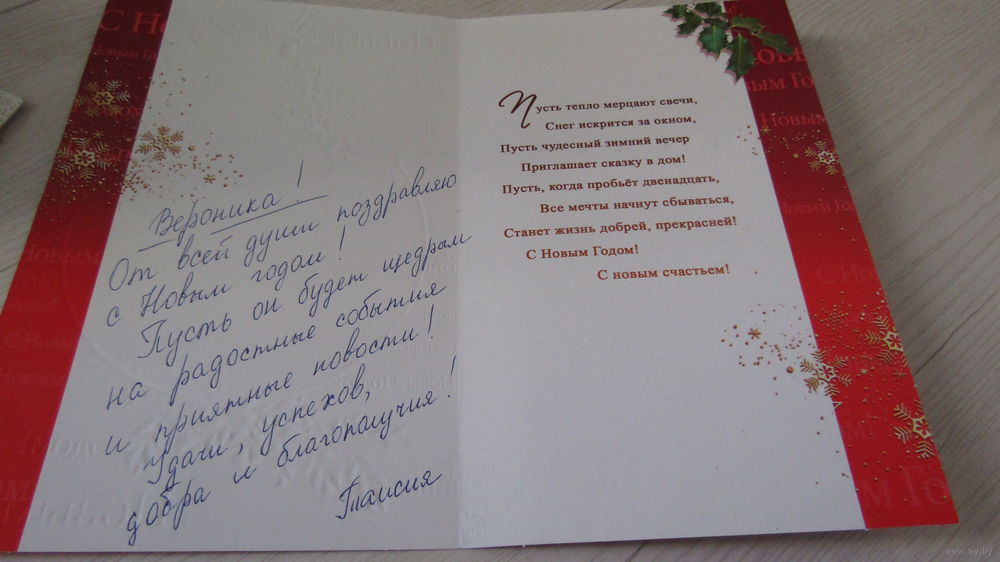 Вероника!
От всей души поздравляю
с Новым годом!
Пусть он будет щедрам
на радостные события
и приятные новости!
Удачи, успехов,
добра и благополучия!
Таисия
Пусть тепло мерцают свечи,
Снег искрится за окном,
Пусть чудесный зимний вечер
Приглашает сказку в дом!
Пусть, когда пробьёт двенадцать,
Все мечты начнут сбываться,
Станет жизнь добрей, прекрасней!
С Новым Годом!
С новым счастьем!
С Новым Годом
www.ay.by